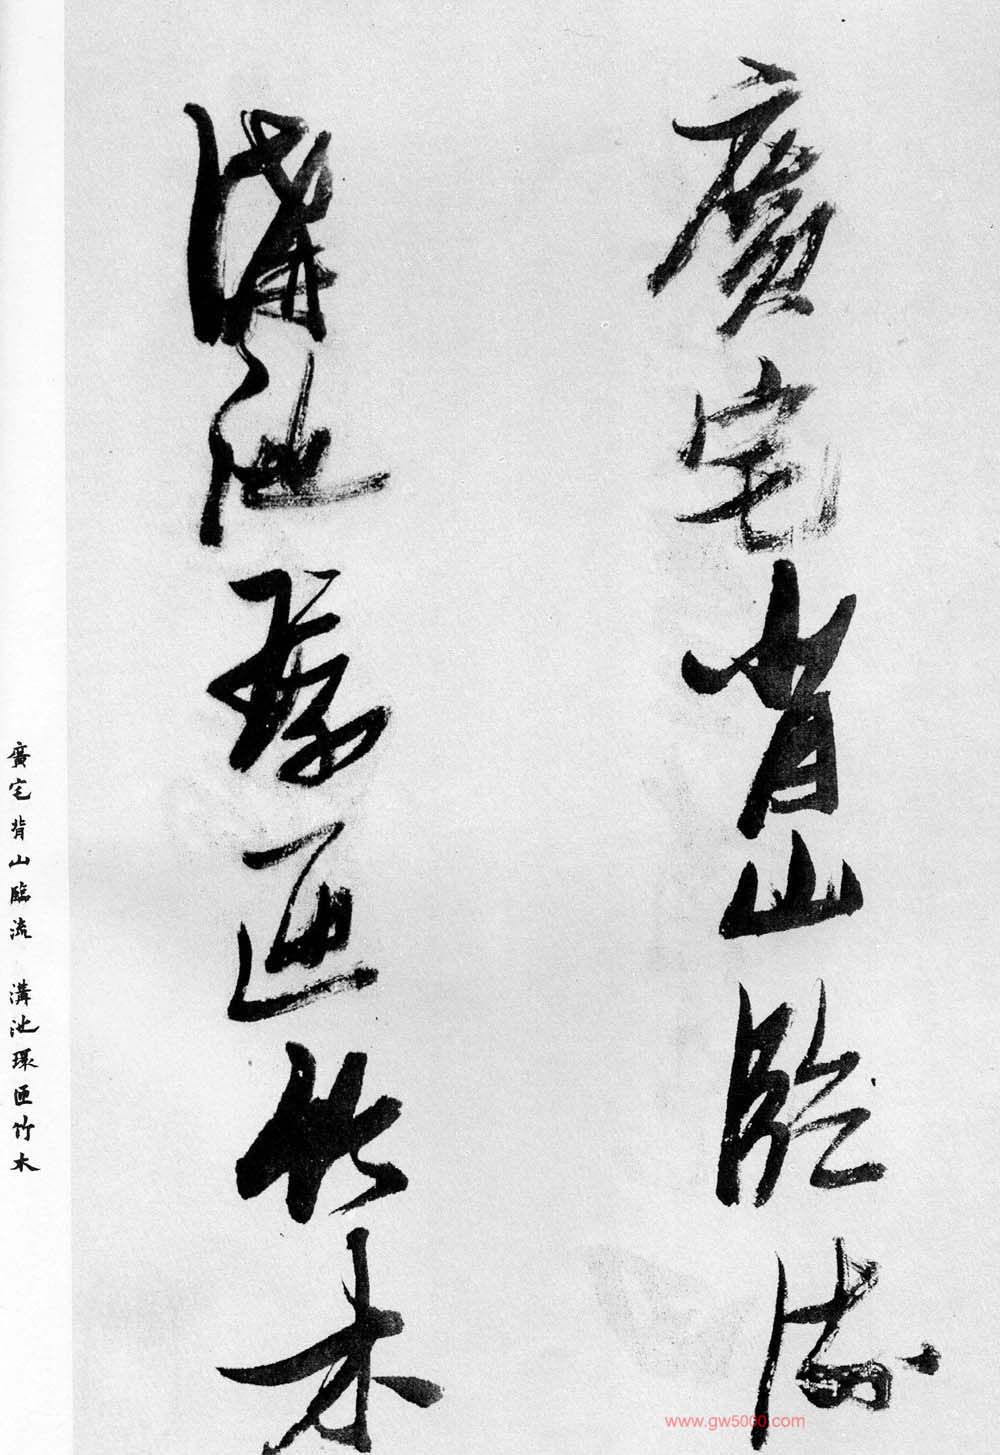 廣宅背山臨流
溝池環匝竹木
廣宅背山臨流 溝池環匝竹木
www.gw5000.com